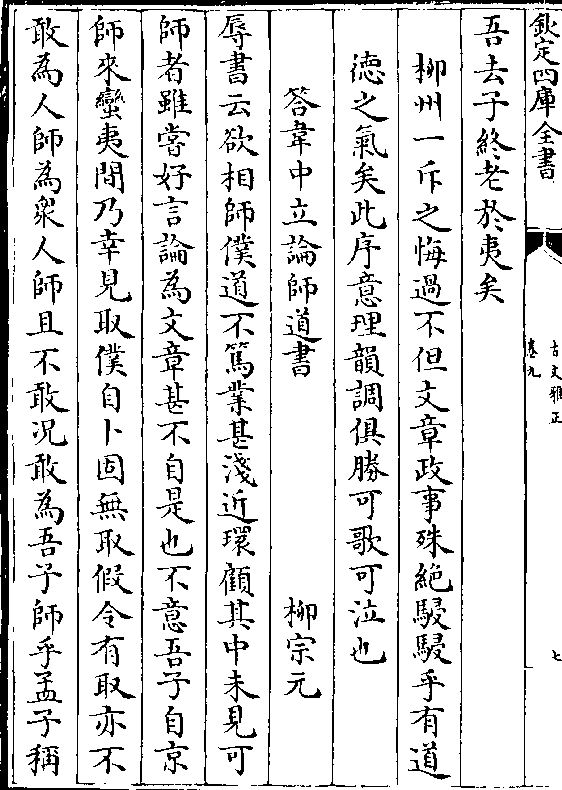 欽定四庫全書
古文雅正
卷九
七
吾去子終老於夷矣
柳州一斥之悔過不但文章政事殊絶駸駸乎有道
徳之氣矣此序意理韻調俱勝可歌可泣也
答韋中立論師道書
柳宗元
辱書云欲相師僕道不篤業甚淺近環顧其中未見可
師者雖嘗好言論為文章甚不自是也不意吾子自京
師來蠻夷間乃幸見取僕自卜固無取假令有取亦不
敢為人師為衆人師且不敢况敢為吾子師乎孟子稱